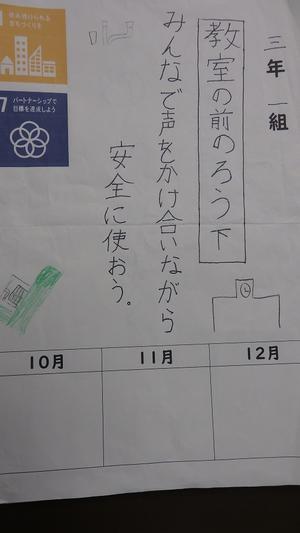 三年一組
教室の前のろう下
みんなで声をかけ合いながら
安全に使おう。
住み続けられる
まちづくりを
7
パートナーシップで
目標を達成しよう
10月
11月
12月